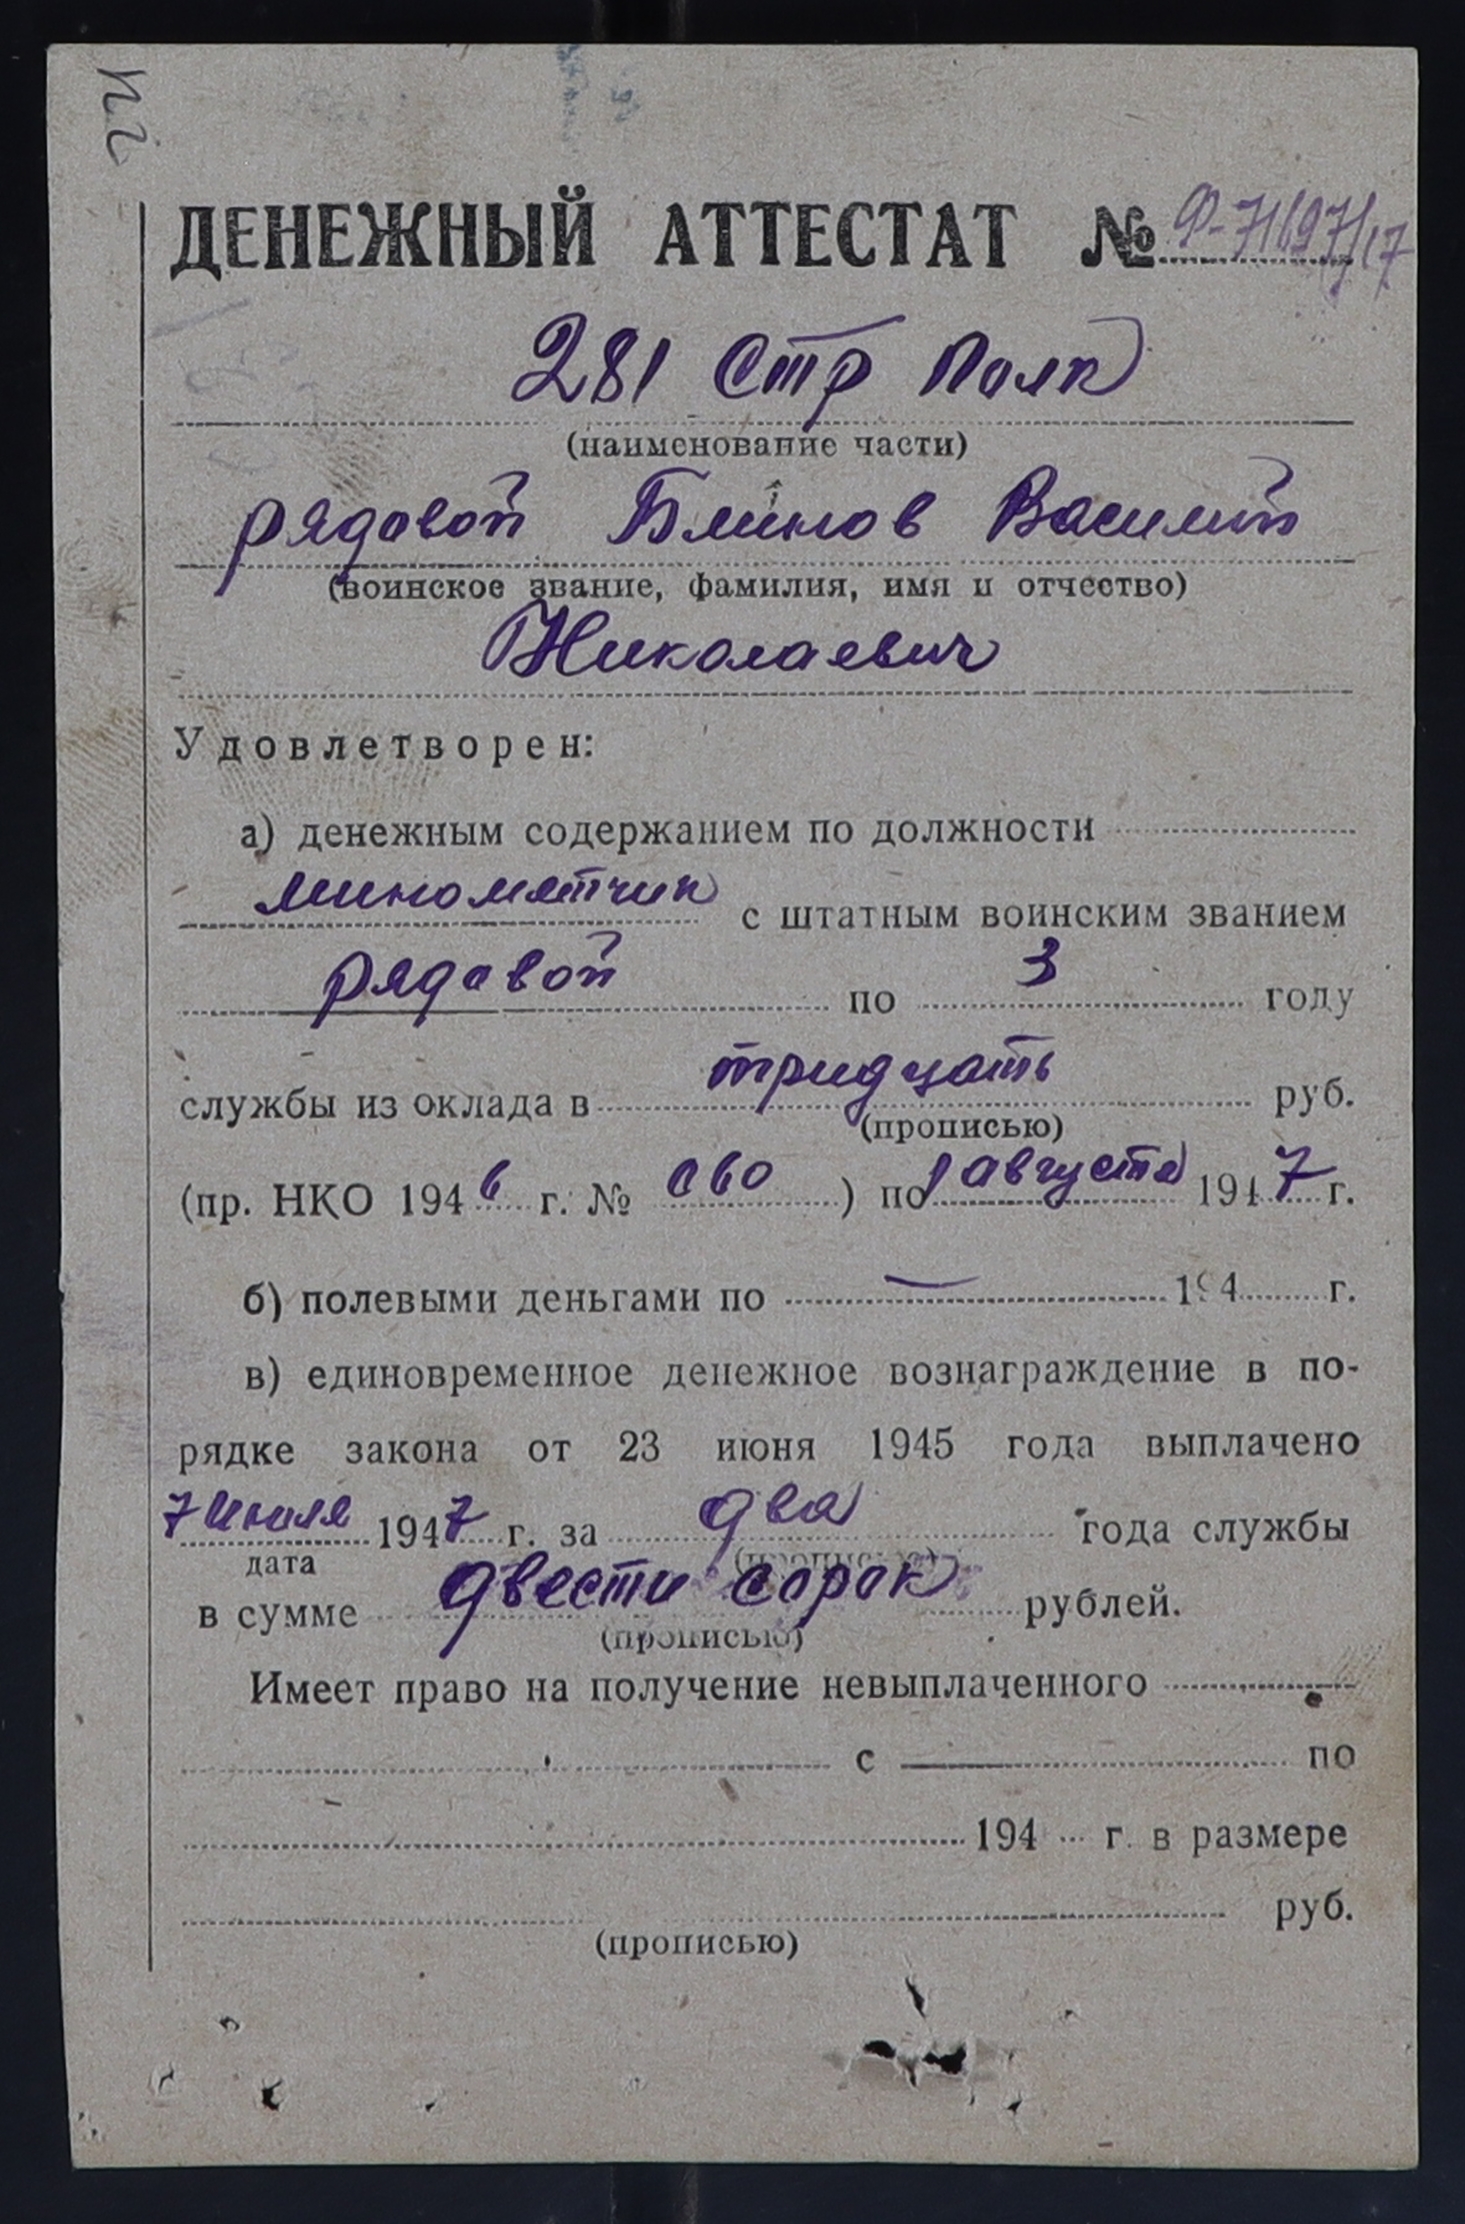 ДЕНЕЖНЫЙ АТТЕСТАТ № Ф-71697/17
281 Стр Полк
(наименование части)
рядовой Блинов Василий
(воинское звание, фамилия, имя и отчество)
Николаевич
Удовлетворен:
а) денежным содержанием по должности
минометчик с штатным воинским званием
рядовой по 3 году
службы из оклада в тридцать руб.
(прописью)
(пр. НКО 1946 г. № 060) по 1 августа 1947 г.
б) полевыми деньгами по — 194 г.
в) единовременное денежное вознаграждение в по-
рядке закона от 23 июня 1945 года выплачено
7 Июля 1947 г. за два года службы
дата (прописью)
в сумме двести сорок рублей.
(прописью)
Имеет право на получение невыплаченного
с по
194 г. в размере
руб.
(прописью)